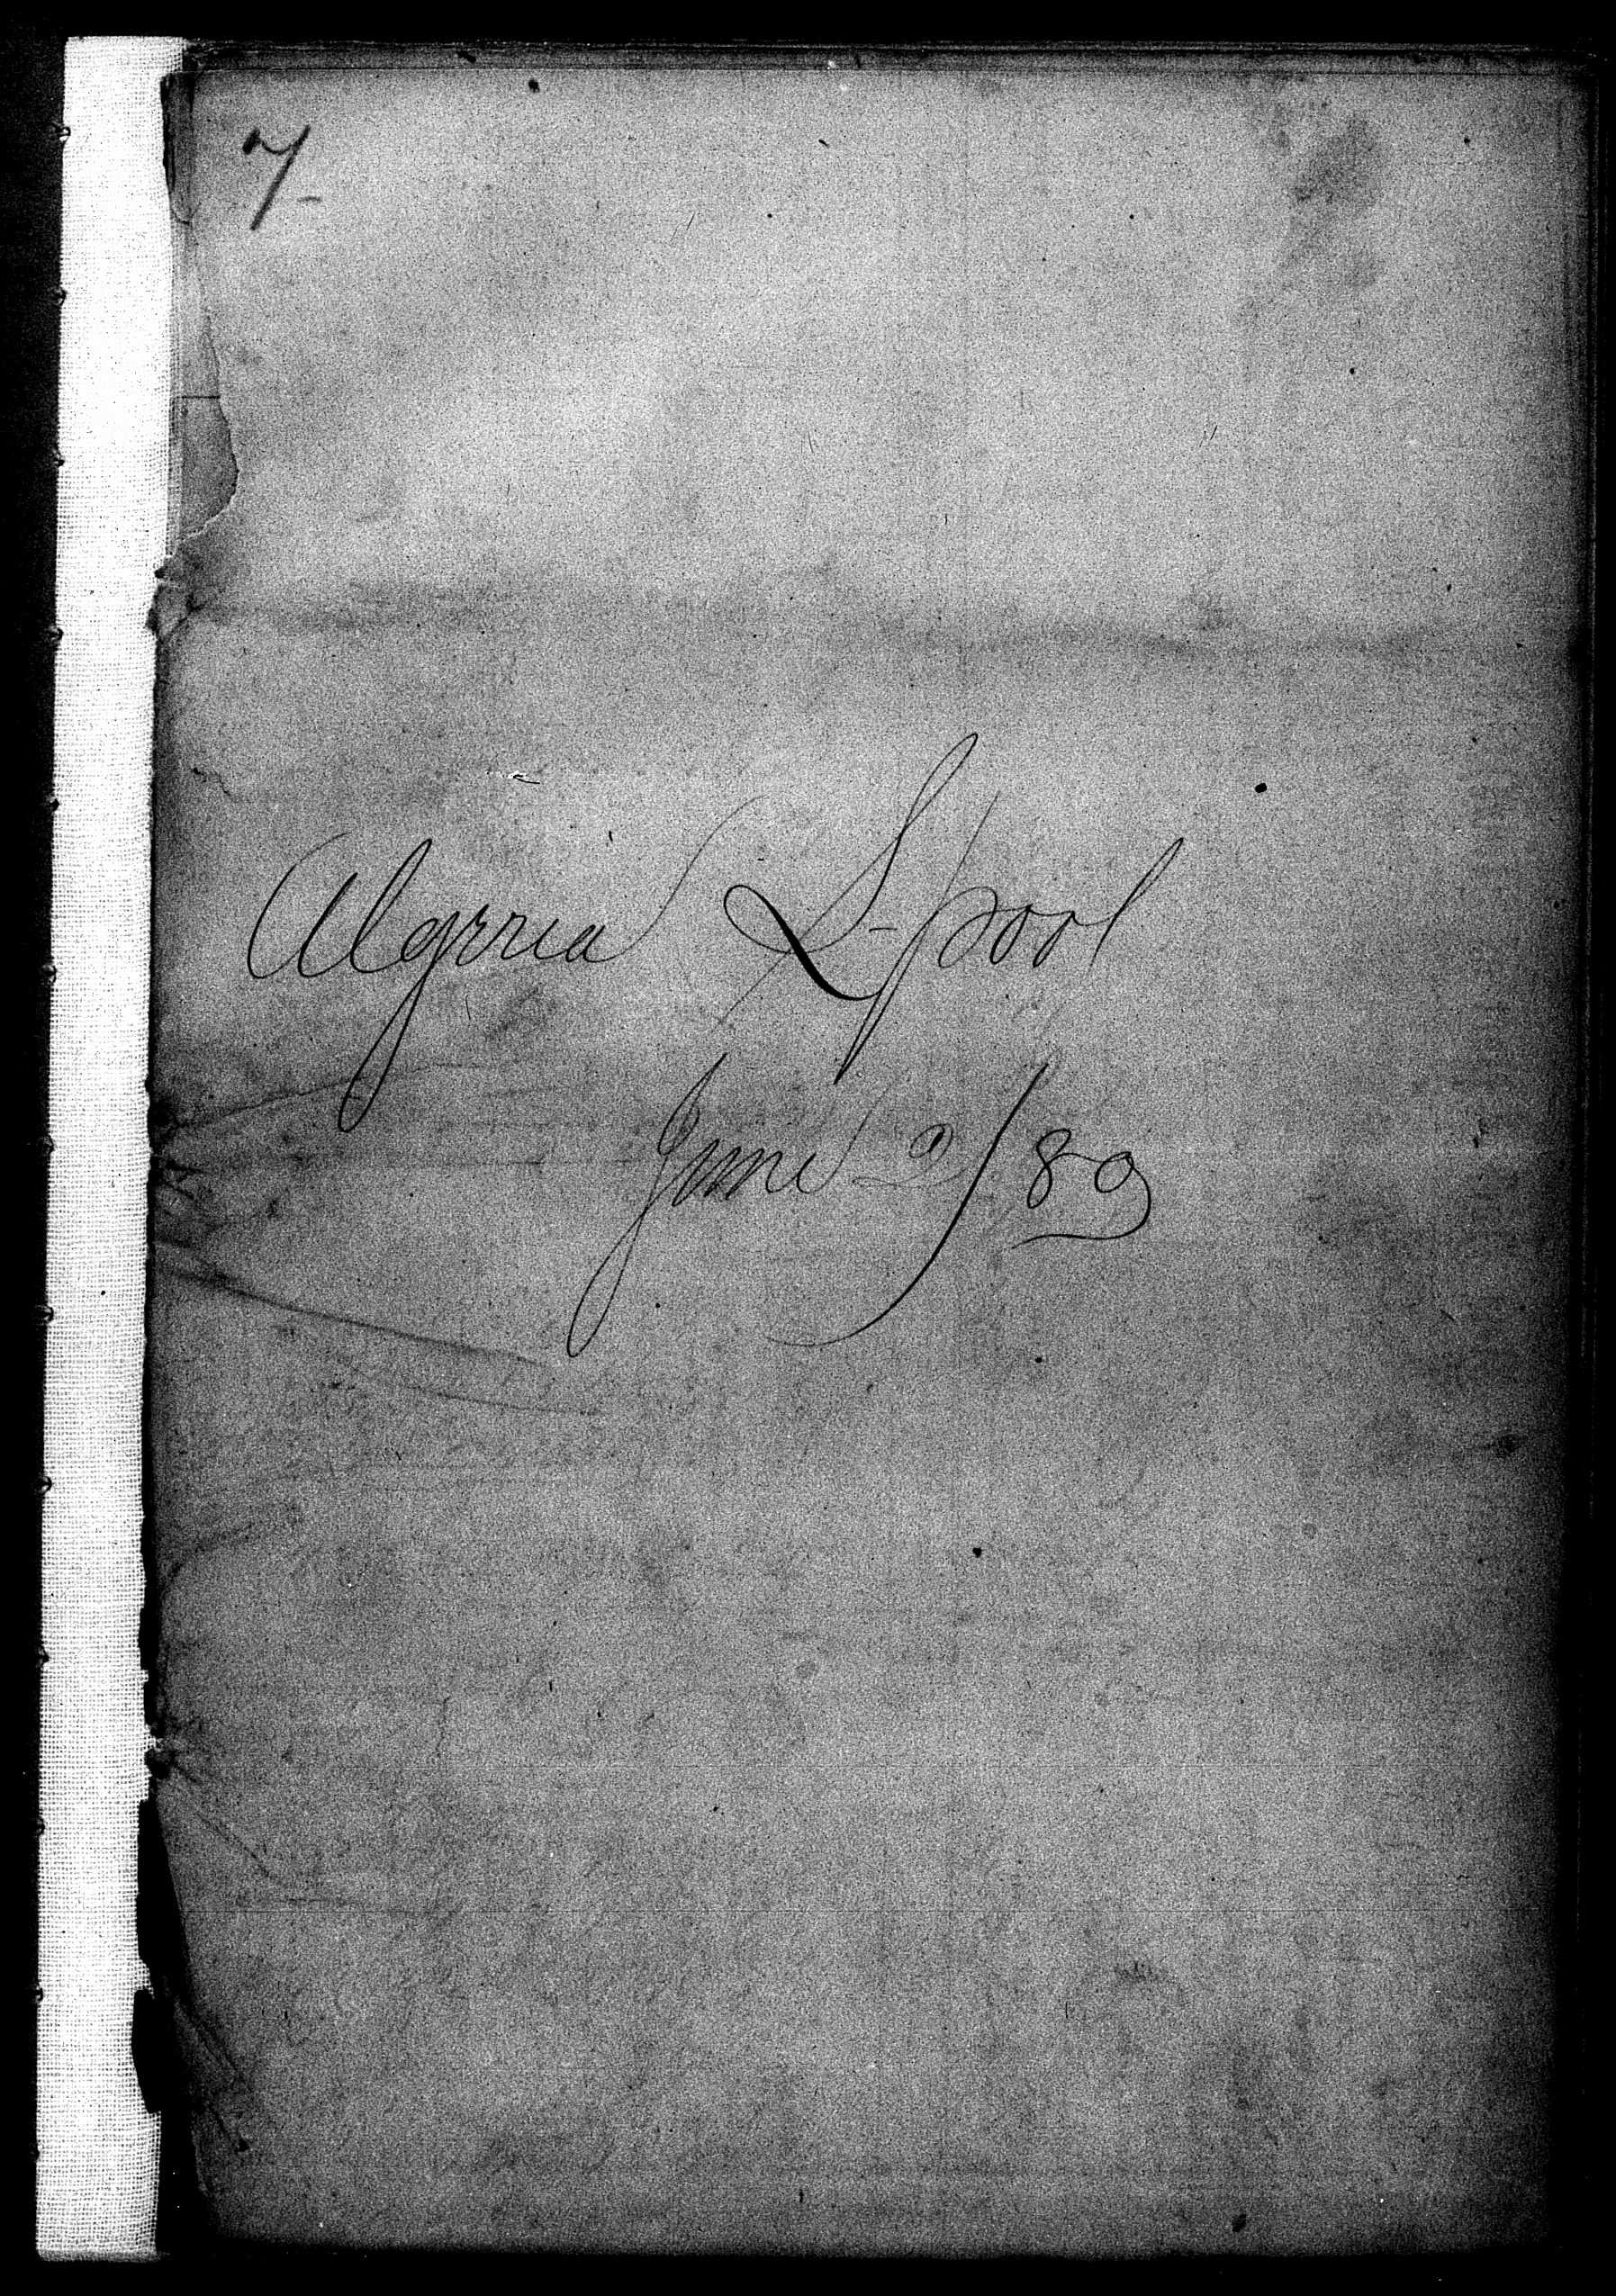 7-
Algeria L-pool
June 2/89